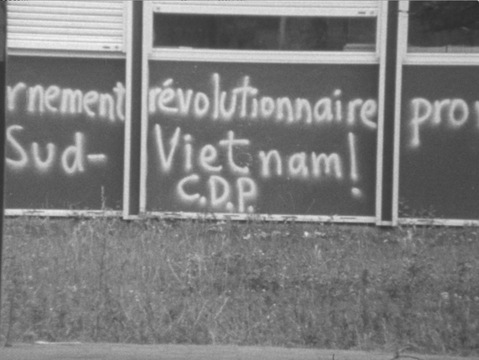 rnement révolutionnaire prov
Sud- Vietnam!
C.D.P.